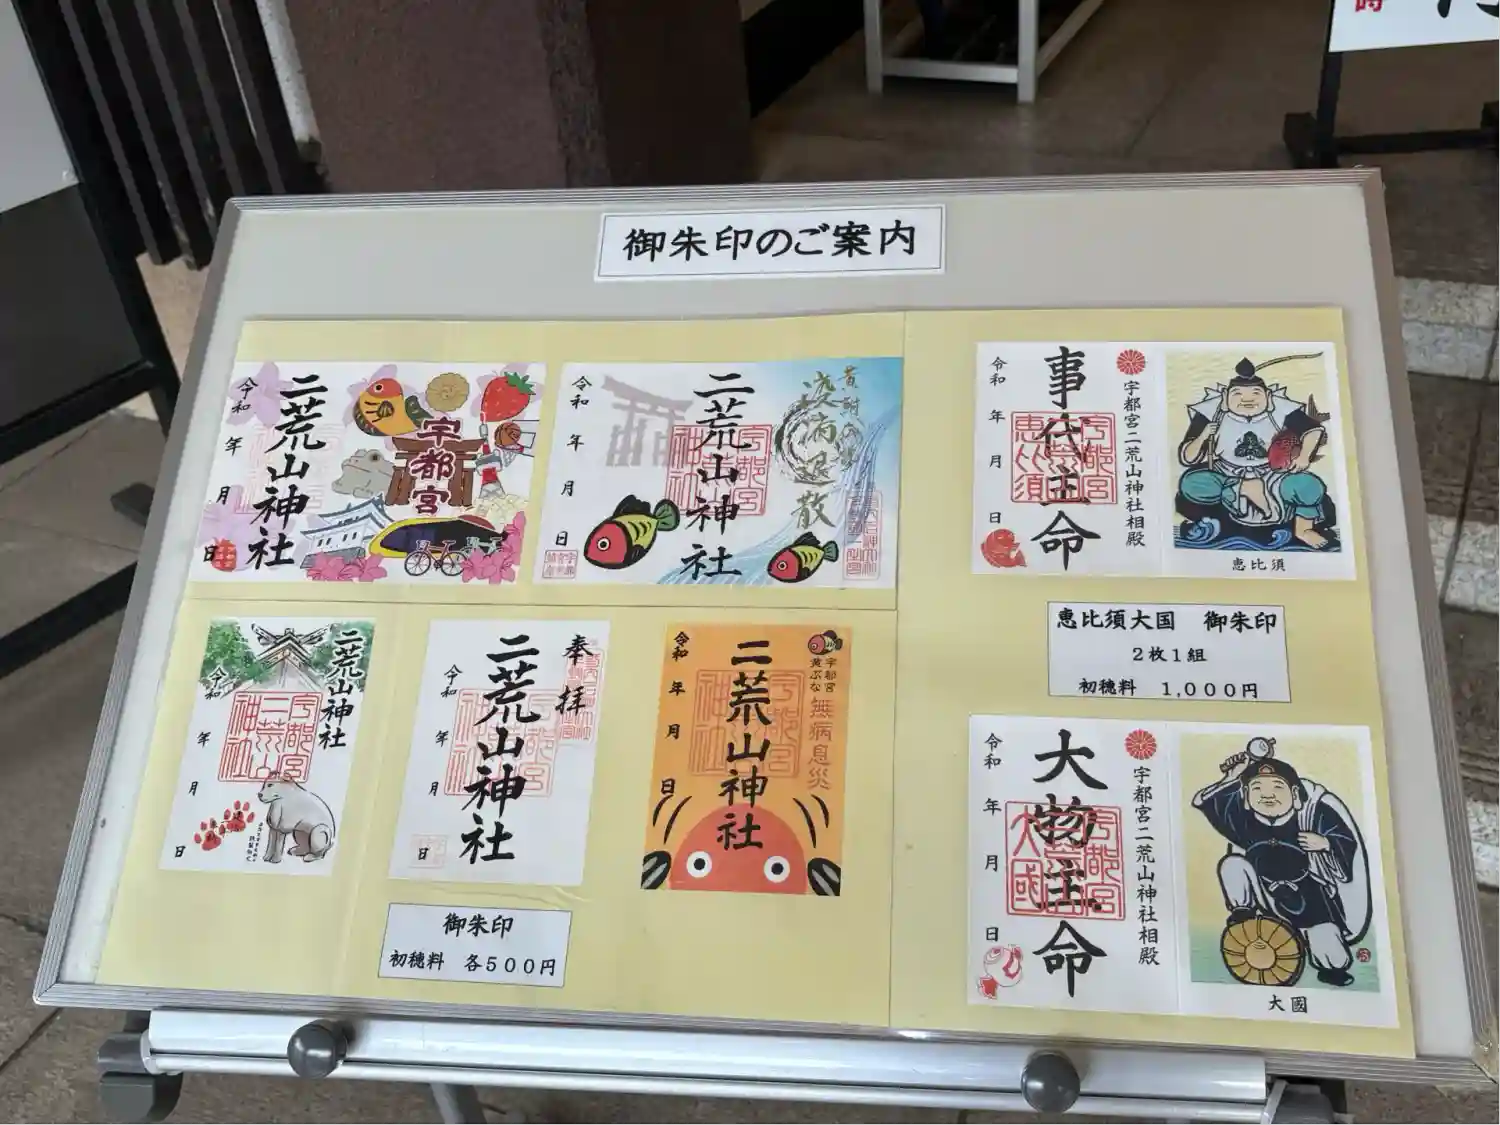 時
御朱印のご案内
二荒山神社
令和 年 月 日
宇都宮
黄鮒の夢
疫病退散
二荒山神社
令和 年 月 日
宇都宮
二荒山神社
令和 年 月 日
宇都宮二荒山神社
奉拝
二荒山神社
令和 年 月 日
宇都宮
黄ぶな
無病息災
二荒山神社
令和 年 月 日
御朱印
初穂料 各500円
宇都宮二荒山神社相殿
事代主命
令和 年 月 日
宇都宮
恵比須
恵比須
恵比須大国 御朱印
2枚1組
初穂料 1,000円
宇都宮二荒山神社相殿
大物主命
令和 年 月 日
宇都宮
大國
大國